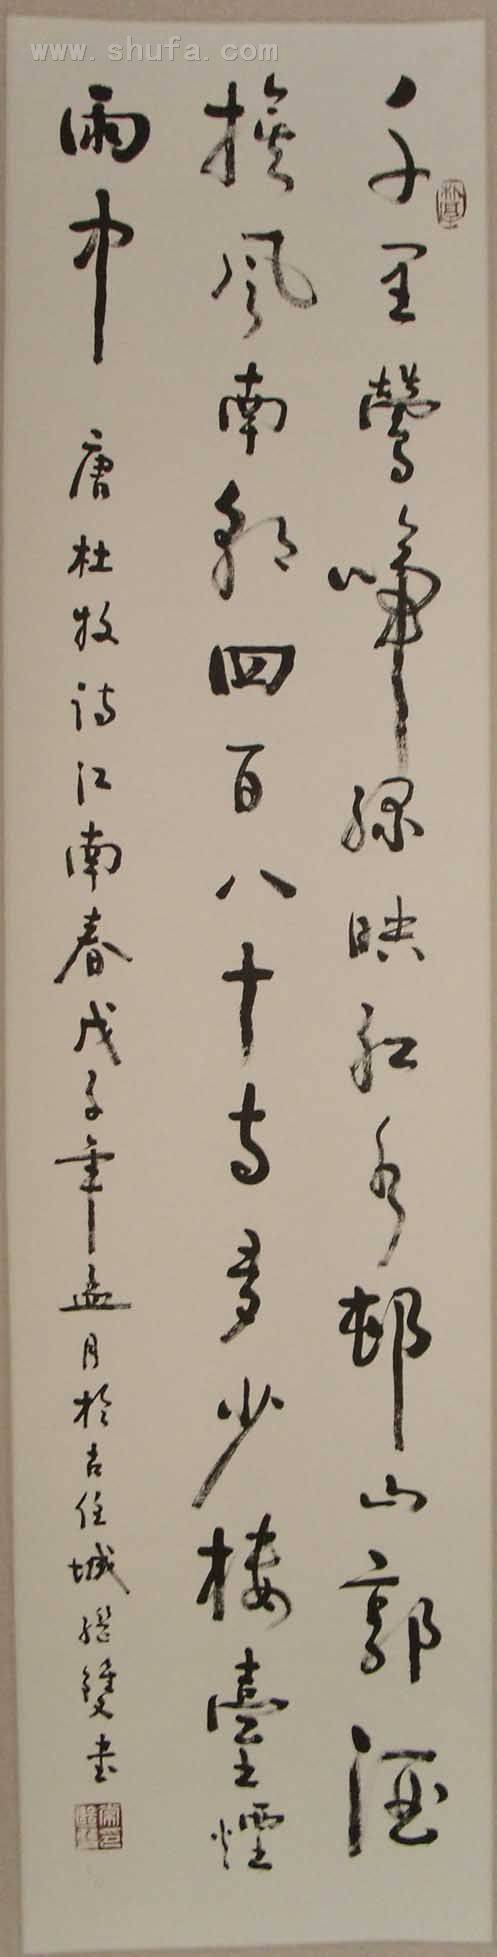 www.shufa.com
千里鶯啼綠映紅水邨山郭酒
旗風南朝四百八十寺多少樓臺煙
雨中 唐杜牧詩江南春戊子年孟月於古任城書